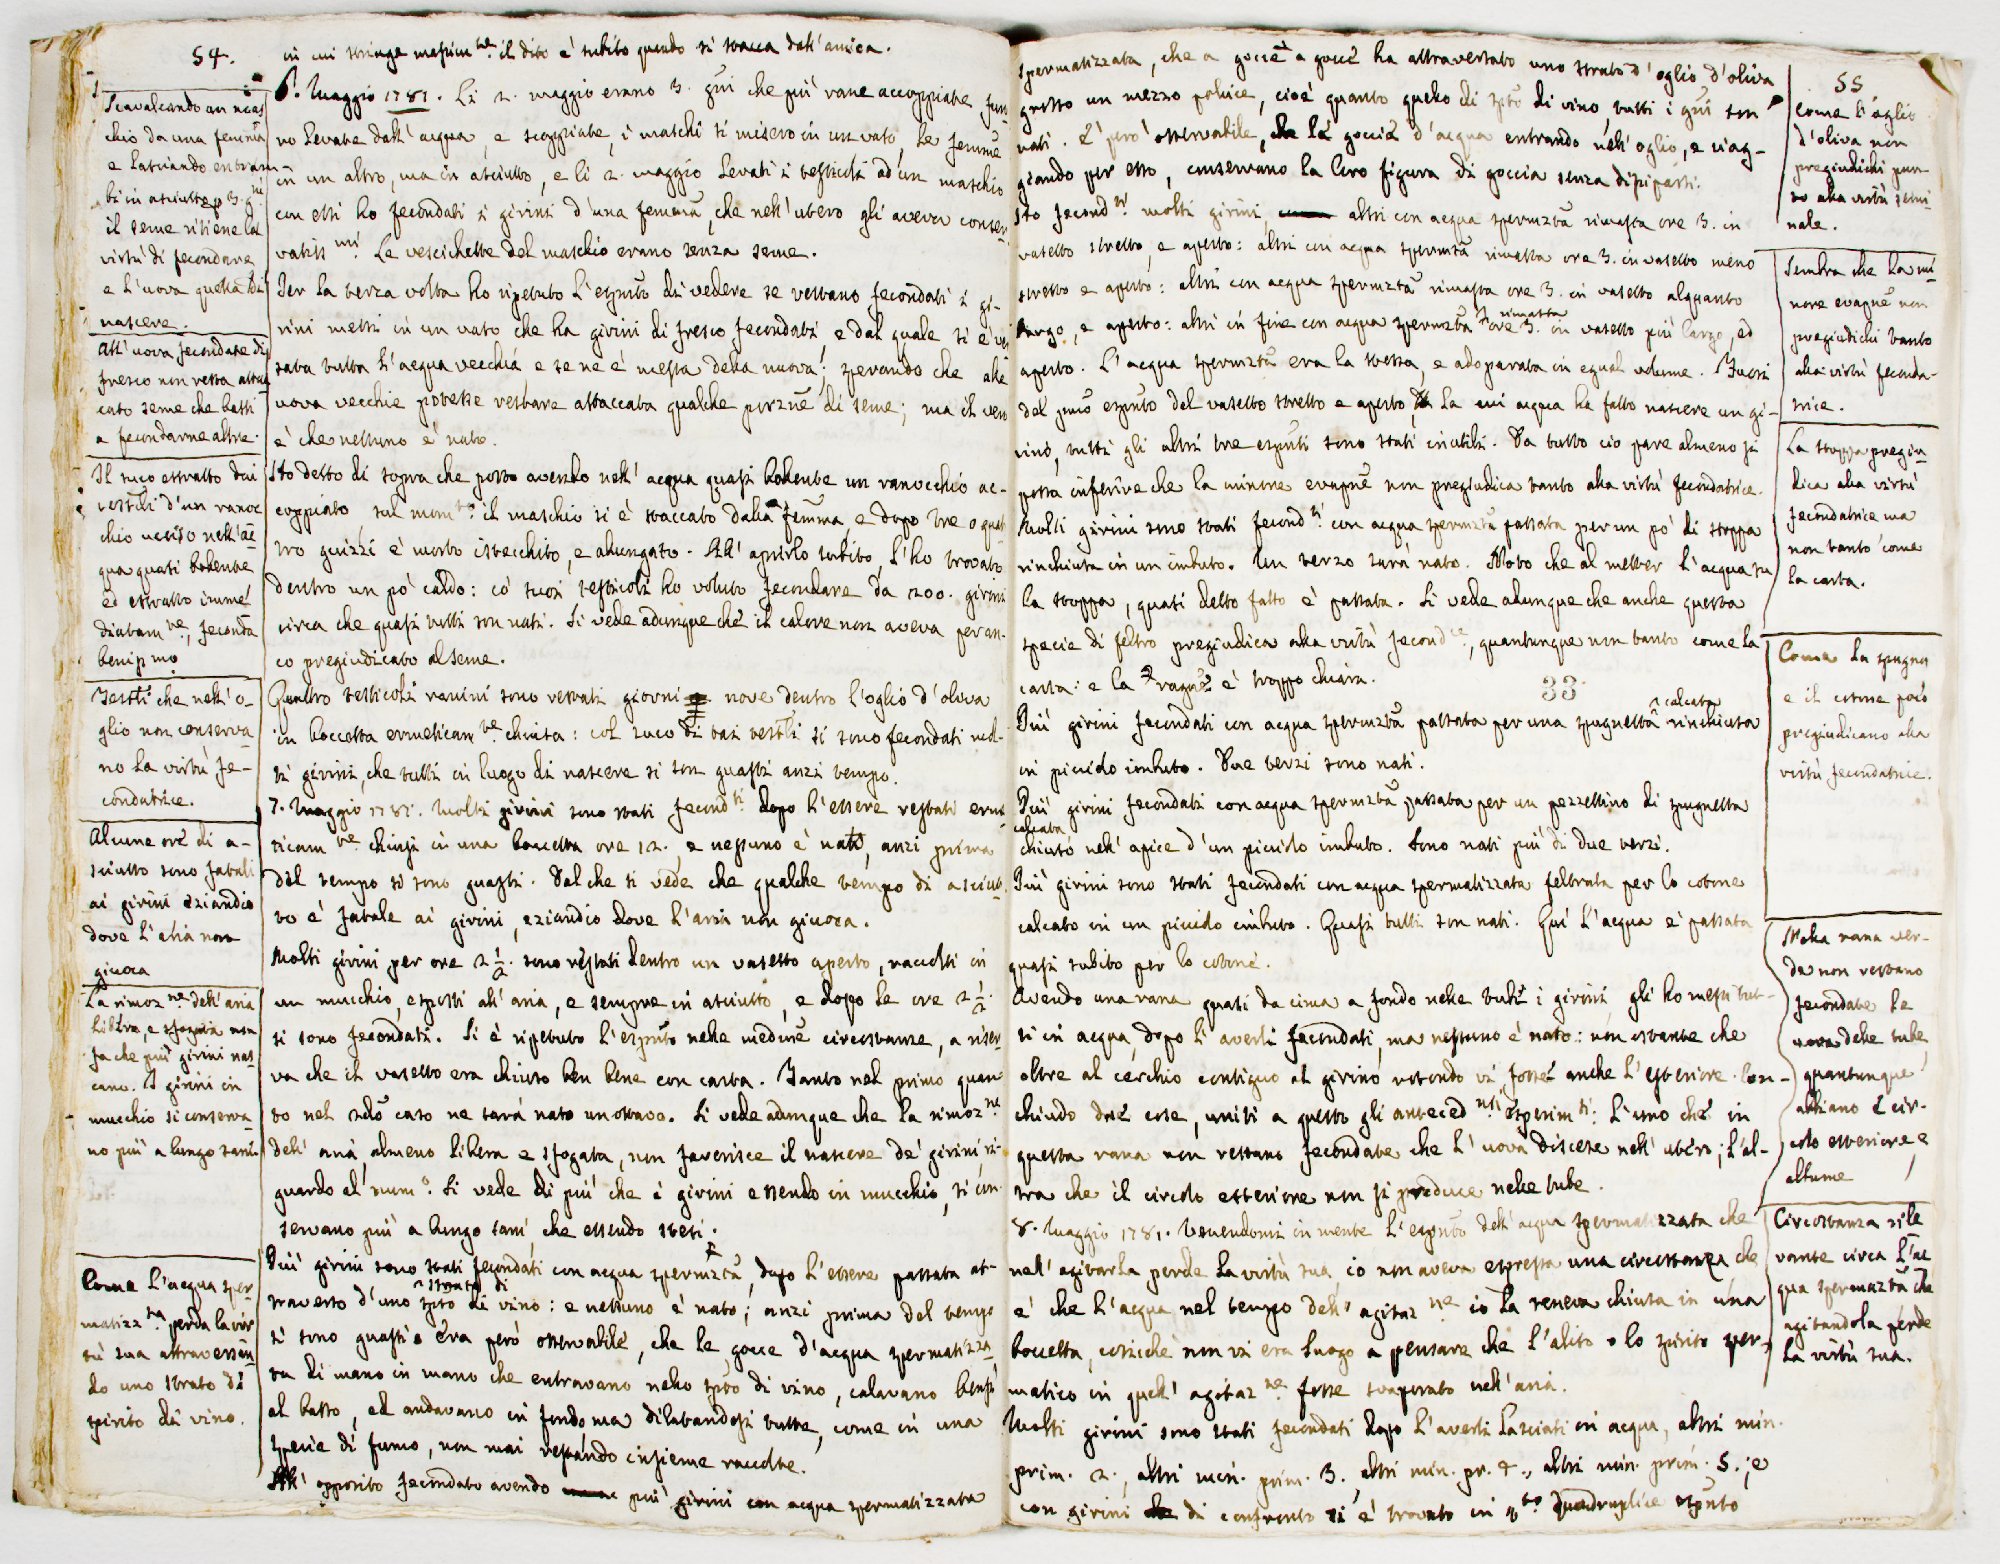 54.
Scavalcando un mas
chio da una femma
e lasciando entram
bi in asciutto p 3. gni
il seme ritiene la
virtù di fecondare
e l'uova quella di
nascere.
All'uova fecondate di
fresco non resta attac
cato seme che basti
a fecondarne altre.
Il suco estratto dai
testcli d'un ranoc
chio ucciso nell'ac
qua quasi bollente
ed estratto immé
diatamte, feconda
benissmo
Testli che nell'o-
glio non conserva
no la virtù fe-
condatrice.
Alcune ore di a-
sciutto sono fatali
ai girini eziandio
dove l'aria non
giuoca
La rimozne dell'aria
libera, e sfogata non
fa che più girini nas
cano. I girini in
mucchio si conserva
no più a lungo sani
Come l'acqua sper
matizzta perda la vir
tù sua attraversan
do uno strato di
spirito di vino.
in cui stringe massimte il dito è subito quando si stacca dall'amica.
6. Maggio 1781. Li 2. maggio erano 3. gni che più rane accoppiate furo
no levate dall'acqua, e scoppiate, i maschi si misero in un vaso, le femme
in un altro, ma in asciutto, e li 2. maggio levati i testicoli ad un maschio
con essi ho fecondati i girini d'una femma, che nell'utero gli aveva conser
vatiss mi. Le vescichette del maschio erano senza seme.
Per la terza volta ho ripetuto l'espmto di vedere se restano fecondati i gi-
rini messi in un vaso che ha girini di fresco fecondati e dal quale si è ver
sata tutta l'acqua vecchia e se ne è messa della nuova; sperando che alle
uova vecchie potesse restare attaccata qualche porzne di seme; ma il vero
è che nessuno è nato.
Ho detto di sopra che posto avendo nell'acqua quasi bollente un ranocchio ac-
coppiato sul momto il maschio si è staccato dalla femma, e dopo tre o quat
tro guizzi è morto istecchito, e allungato. All'aprirlo subito, l'ho trovato
dentro un pò caldo: co' suoi testicoli ho voluto fecondare da 200. girini
circa che quasi tutti son nati. Si vede adunque che il calore non aveva per an-
co pregiudicato al seme.
Quattro testicoli ranini sono restati giorni nove dentro l'oglio d'oliva
in boccetta ermeticamte chiusa: col suco di tai testli si sono fecondati mol-
ti girini, che tutti in luogo di nascere si son guasti anzi tempo.
7. Maggio 1781. Molti girini sono stati fecondti dopo l'essere restati erme
ticamte chiusi in una boccetta ore 12., e nessuno è nato, anzi prima
del tempo si sono guasti. Dal che si vede che qualche tempo di asciut
to è fatale ai girini, eziandio dove l'aria non giuoca.
Molti girini per ore 2 1/2. sono restati dentro un vasetto aperto, raccolti in
un mucchio, esposti all'aria, e sempre in asciutto, e dopo le ore 2 1/2.
si sono fecondati. Si è ripetuto l'espmto nelle medme circostanze, a riser
va che il vasetto era chiuso ben bene con carta. Tanto nel primo quan
to nel sedo caso ne sarà nato un ottavo. Si vede adunque che la rimozne
dell'aria, almeno libera e sfogata, non favorisce il nascere de' girini, ri-
guardo al numo. Si vede di più che i girini essendo in mucchio, si con
servano più a lungo sani che essendo stesi.
Più girini sono stati fecondati con acqua spermzta, dopo l'essere passata at-
traverso d'uno strato di spto di vino: e nessuno è nato; anzi prima del tempo
si sono guasti. Era però osservabile, che le gocce d'acqua spermatizza
ta di mano in mano che entravano nello spto di vino, calavano bensì
al basso, ed andavano in fondo, ma dilatandosi tutte, come in una
specie di fumo, non mai restando insieme raccolte.
All'opposito fecondato avendo più girini con acqua spermatizzata
55
spermatizzata, che a goccie a goccie ha attraversato uno strato d'oglio d'oliva
grosso un mezzo pollice, cioè quanto quello di spto di vino, tutti i gni son
nati. E' però osservabile, che le goccie d'acqua entrando nell'oglio, e viag-
giando per esso, conservano la loro figura di goccia senza dissiparsi.
Ho fecondti molti girini, altri con acqua spermzta rimasta ore 3. in
vasetto stretto, e aperto: altri con acqua spermzta rimasta ore 3. in vasetto meno
stretto e aperto: altri con acqua spermzta rimasta ore 3. in vasetto alquanto
largo, e aperto: altri in fine con acqua spermzta rimasta ore 3. in vasetto più largo, ed
aperto. L'acqua spermzta era la stessa, e adoperata in egual volume. Fuori
del pmo espmto del vasetto stretto e aperto, la cui acqua ha fatto nascere un gi-
rino, tutti gli altri tre espmti sono stati inutili. Da tutto ciò pare almeno si
possa inferire che la minore evapne non pregiudica tanto alla virtù fecondatrice.
Molti girini sono stati fecondti con acqua spermzta passata per un pò di stoppa
rinchiusa in un imbuto. Un terzo sarà nato. Noto che al metter l'acqua su
la stoppa, quasi detto fatto è passata. Si vede adunque che anche questa
specie di feltro pregiudica alla virtù fecondce, quantunque non tanto come la
carta: e la ragne è troppo chiara.
33
Più girini fecondati con acqua spermzta passata per una spugnetta calcata rinchiusa
in piccolo imbuto. Due terzi sono nati.
Più girini fecondati con acqua spermzta passata per un pezzettino di spugnetta
calcata
chiuso nell'apice d'un piccolo imbuto. Sono nati più di due terzi.
Più girini sono stati fecondati con acqua spermatizzata feltrata per lo cotone
calcato in un piccolo imbuto. Quasi tutti son nati. Qui l'acqua è passata
quasi subito per lo cotone.
Avendo una rana quasi da cima a fondo nelle tube i girini, gli ho messi tut-
ti in acqua, dopo l'averli fecondati, ma nessuno è nato: non ostante che
oltre al cerchio contiguo al girino rotondo vi fosse anche l'esteriore. Con-
chiudo due cose, uniti a questo gli antecednti esperimti: L'uno che in
questa rana non restano fecondate che l'uova discese nell'utero; l'al-
tra che il circolo esteriore non si produce nelle tube.
8. Maggio 1781. Venendomi in mente l'espmto dell'acqua spermatizzata che
nell'agitarla perde la virtù sua, io non aveva espressa una circostanza che
è che l'acqua nel tempo dell'agitazne io la teneva chiusa in una
boccetta, cosicchè non vi era luogo a pensare che l'alito o lo spirito sper-
matico in quell'agitazne fosse svaporato nell'aria.
Molti girini sono stati fecondati dopo l'averli lasciati in acqua, altri min.
prim. 2., altri min. prim. 3., altri min. pr. 4., altri min. prim. 5.; e
con girini di confronto si è trovato in qto quadruplice espmto
Come l'oglio
d'oliva non
pregiudichi pun
to alla virtù semi
nale.
Sembra che la mi
nore evapne non
pregiudichi tanto
alla virtù feconda-
trice.
La stoppa pregiu
dica alla virtù
fecondatrice ma
non tanto come
la carta.
Come la spugna
e il cotone poco
pregiudicano alla
virtù fecondatrice.
Nella rana ver-
de non restano
fecondate le
uova delle tube,
quantunque
abbiano il cir-
colo esteriore, e
albume
Circostanza rile
vante circa l'ac
qua spermazta che
agitandola perde
la virtù sua.